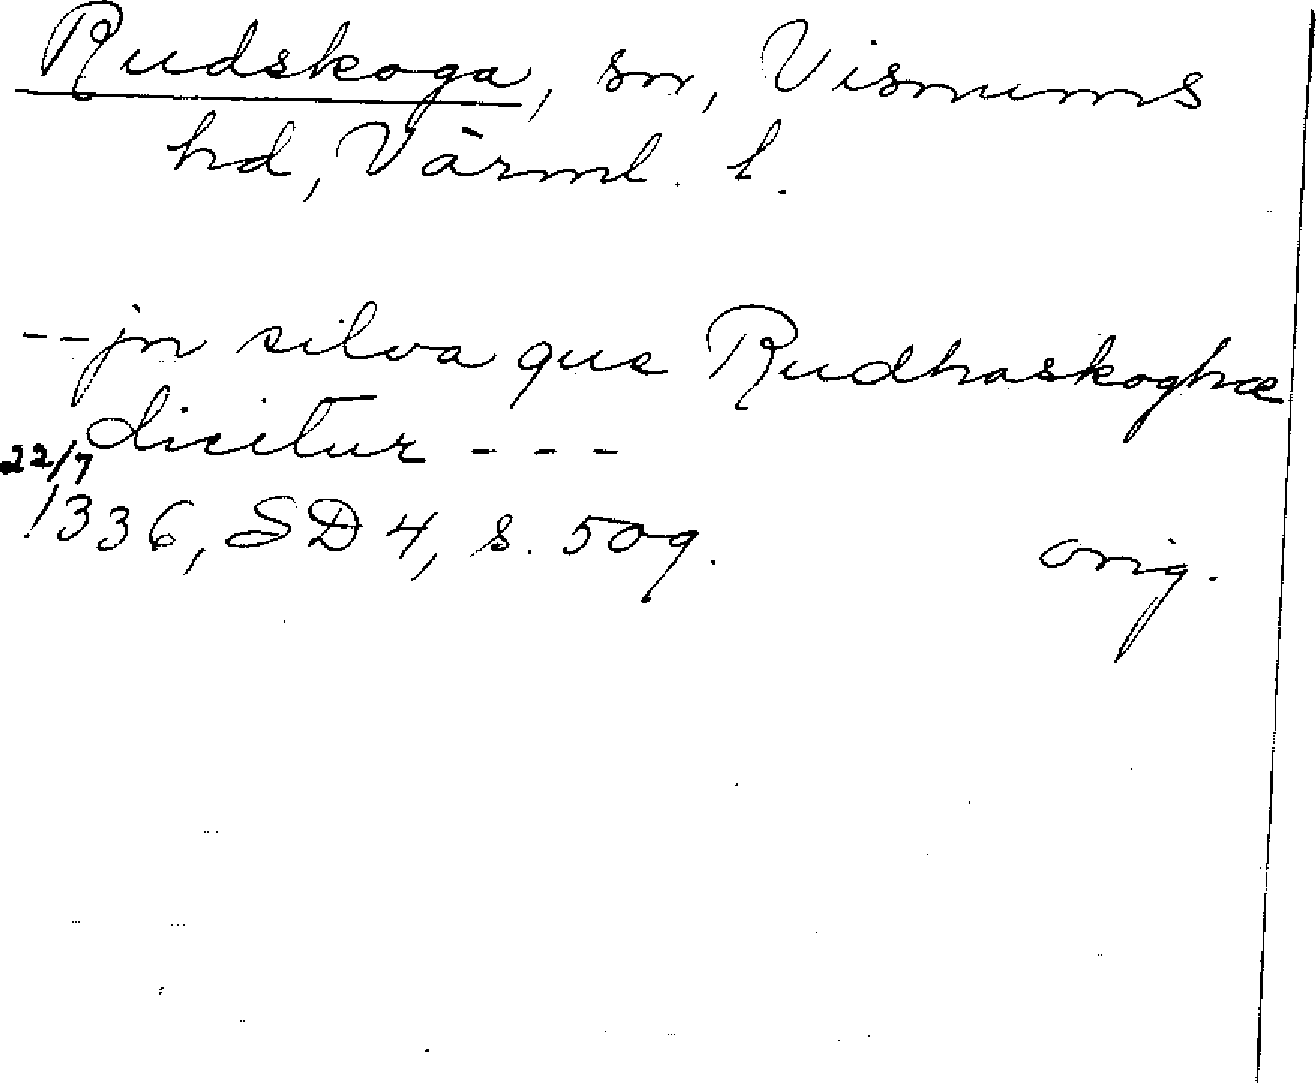 Rudskoga, sn, Visnums
hd, Värml. l.
--jn silva que Rudhaskoghæ
dicitur ---
22/7
1336, SD 4, s. 509. orig.